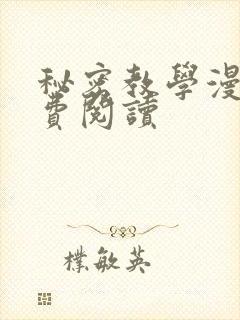 秘密教學漫
費閱讀
樸敏英